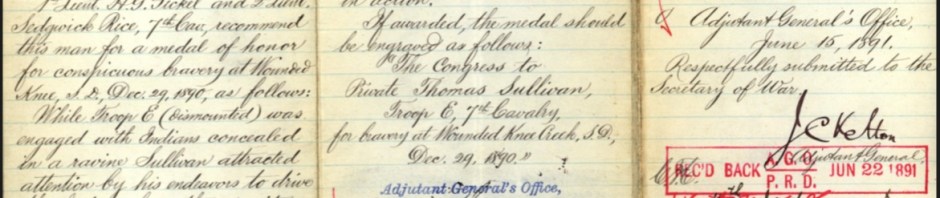 1st Lieut. H. G. Sickel and 2 Lieut.
Sedgwick Rice, 7th Cav, recommend
this man for a medal of honor
for conspicuous bravery at Wounded
Knee, S. D., Dec. 29, 1890, as follows:
While Troop E (dismounted) was
engaged with Indians concealed
in a ravine Sullivan attracted
attention by his endeavors to drive
in action.
If awarded, the medal should
be engraved as follows:
"The Congress to
Private Thomas Sullivan,
Troop E, 7th Cavalry,
for bravery at Wounded Knee Creek, S.D.,
Dec. 29, 1890."
Adjutant General's Office,
Adjutant General's Office,
June 15, 1891.
Respectfully submitted to the
Secretary of War.
J C Kelton
Adjutant General.
REC'D BACK A.G.O. JUN 22 1891
P. R. D.